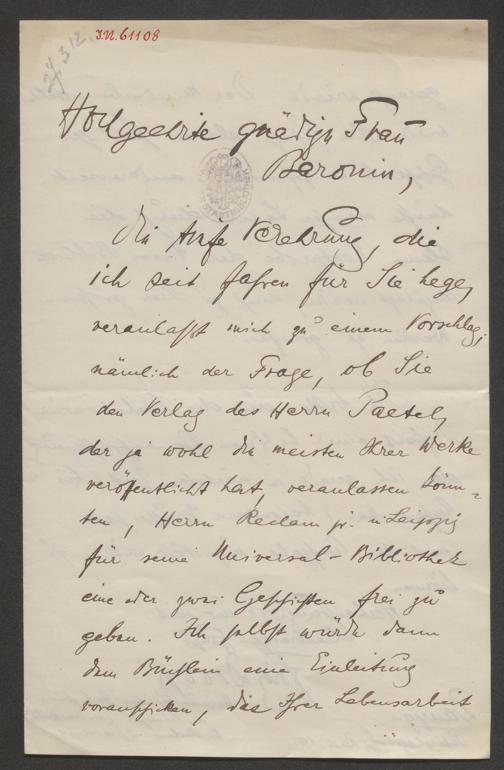 J.N. 61108
Hochgeehrte gnädige Frau
Baronin,
die tiefe Verehrung, die
ich seit Jahren für Sie hege,
veranlaßt mich zu einem Vorschlag,
nämlich der Frage, ob Sie
den Verlag des Herrn Paetel,
der ja wohl die meisten Ihrer Werke
veröffentlicht hat, veranlassen könn-
ten, Herrn Reclam jr. in Leipzig
für seine Universal-Bibliothek
eine oder zwei Geschichten frei zu
geben. Ich selbst würde dann
dem Büchlein eine Einleitung
vorausschicken, die Ihrer Lebensarbeit